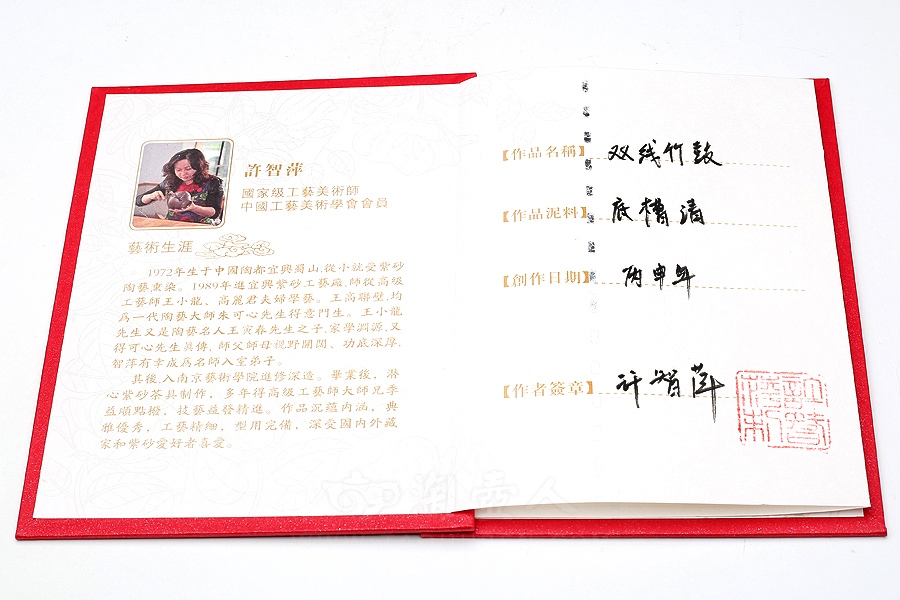 許智萍
國家級工藝美術師
中國工藝美術學會會員
藝術生涯
1972年生于中國陶都宜興蜀山,從小就受紫砂
陶藝熏染。1989年進宜興紫砂工藝廠,師從高級
工藝師王小龍、高麗君夫婦學藝。王高聯壁,均
爲一代陶藝大師朱可心先生得意門生。王小龍
先生又是陶藝名人王寅春先生之子,家學淵源,又
得可心先生真傳,師父師母視野開闊、功底深厚,
智萍有幸成爲名師入室弟子。
其後,入南京藝術學院進修深造。畢業後,潛
心紫砂茶具制作,多年得高級工藝師大師兄季
益順點撥,技藝益發精進。作品沉蘊内涵,典
雅優秀,工藝精細,型用完備,深受國内外藏
家和紫砂愛好者喜愛。
【作品名稱】双线竹鼓
【作品泥料】底槽清
【創作日期】丙申年
【作者簽章】许智萍